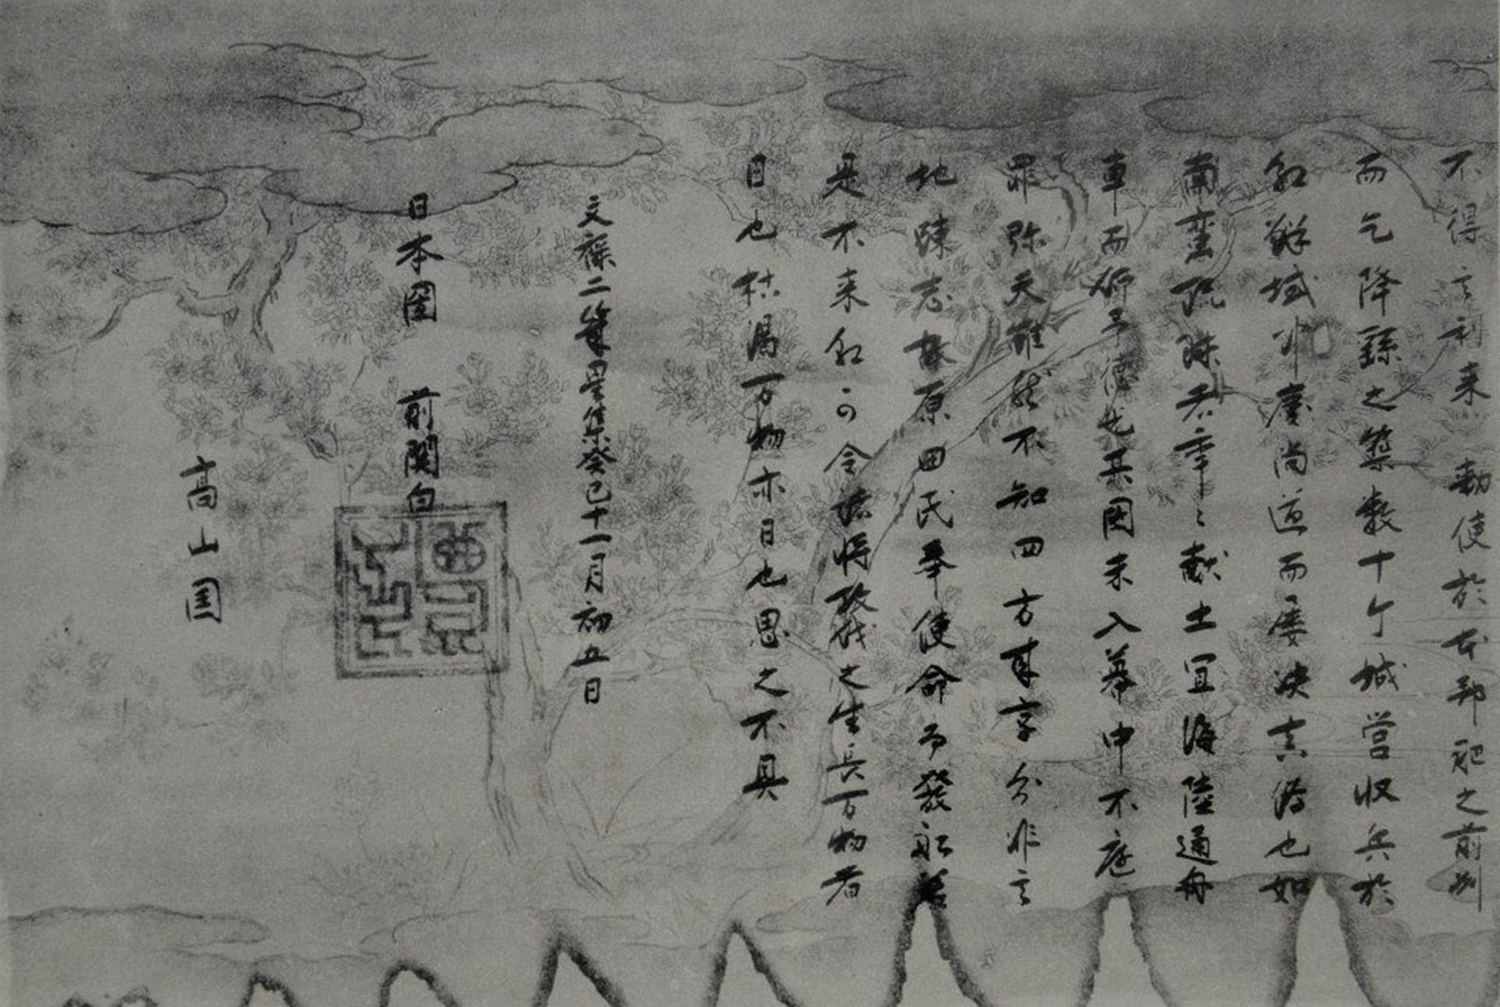 不得言利来 勅使於本邦祀之前㓨
而乞降繇之築数十ケ城営収兵於
朝鮮域中慶尚道而屡決真偽也如
南蛮琉球者年ミ献土宜海陸通舟
車而仰予徳光其国未入幕中不庭
罪弥天雖然不知四方来享分非言
地疎志故原田氏奉使命而發船若
是不来朝可令諸将攻伐之生長万物者
日也枯渇万物亦日也思之不具
文禄二年星集癸巳十一月初五日
日本国 前関白
高山国